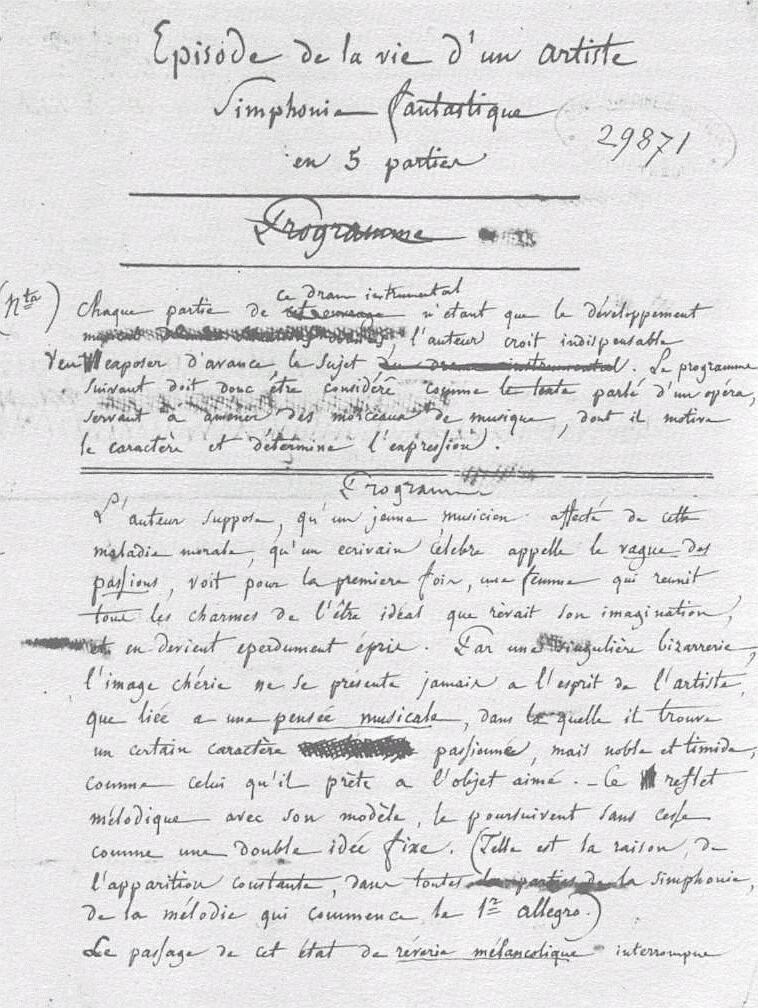 Episode de la vie d'un artiste
Simphonie fantastique
en 5 parties
29871
Programme
(Nta)
ce dram instrumental
Chaque partie de n'étant que le développement
l'auteur croit indispensable
exposer d'avance le sujet du drame instrumental. Le programme
suivant doit donc être considéré comme le texte parlé d'un opéra,
servant à amener des morceaux de musique, dont il motive
le caractère et détermine l'expression).
Programme
L'auteur suppose, qu'un jeune musicien affecté de cette
maladie morale, qu'un ecrivain célebre appelle le vague des
passions, voit pour la premiere fois, une femme qui reunit
tous les charmes de l'être idéal que rêvait son imagination,
et en devient eperdument épris. Par une singulière bizarrerie,
l'image chérie ne se présente jamais a l'esprit de l'artiste
que liée a une pensée musicale, dans la quelle il trouve
un certain caractère passionné, mais noble et timide,
comme celui qu'il prête a l'objet aimé. - Ce reflet
mélodique avec son modèle, le poursuivent sans cesse
comme une double idée fixe. (Telle est la raison, de
l'apparition constante, dans toutes les parties de la simphonie,
de la mélodie qui commence le 1er allégro.)
Le passage de cet état de rêverie mélancolique interrompue